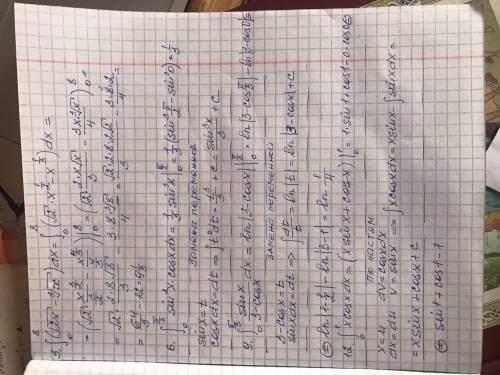 3. ∫₀⁸ (√(2x) - ∛x) dx = ∫₀⁸ (√2 · x^(1/2) - x^(1/3)) dx =
= (√2 · x^(3/2) / (3/2) - x^(4/3) / (4/3)) |₀⁸ = (√2 · 2 · x√x / 3 - 3x · ∛x / 4) |₀⁸ =
= √2 · 2 · 8√8 / 3 - 3 · 8 · ∛8 / 4 = √2 · 2 · 8 · 2√2 / 3 - 3 · 8 · 2 / 4 =
= 64/3 - 12 = 9 1/3
6. ∫₀^(π/2) sin²x · cosx dx = 1/3 sin³x |₀^(π/2) = 1/3 (sin³ π/2 - sin³0) = 1/3
замена переменной
sinx = t
cosx dx = dt ⇒ ∫t²dt = t³/3 + c = sin³x/3 + c
9. ∫₀^(π/3) sinx / (3 - cosx) dx = ln|3 - cosx| |₀^(π/3) = ln|3 - cos π/3| - ln|3 - cos0| ⊜
замена переменной
3 - cosx = t
sinx dx = dt ⇒ ∫dt/t = ln|t| = ln|3 - cosx| + c
⊜ ln|
12. ∫₀¹ x cosx dx = (x sinx + cosx) |₀¹ = 1 · sin1 + cos1 - 0 - cos0 ⊜
по частям
dv = cosx dx
dx = du v = sinx ⇒ ∫x cosx dx = x sinx - ∫sinx dx =
= x sinx + cosx + c
⊜ sin1 + cos1 - 1